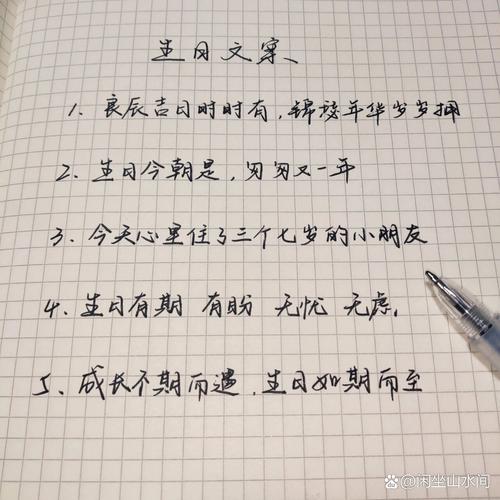 生日文案
1、良辰吉日时时有，锦瑟年华岁岁拥
2、生日今朝是，匆匆又一年
3、今天心里住了三个七岁的小朋友
4、生日有期 有盼 无忧 无虑，
5、成长不期而遇，生日如期而至
@闲坐山水间